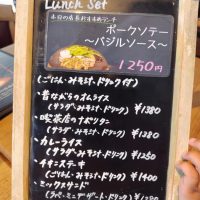 Lunch Set
本日の店長おすすめランチ
ポークソテー
～バジルソース～
1250円
(ごはん・みそ汁・ドリンク付)
・昔ながらのオムライス
(サラダ・みそ汁・ドリンク) ¥1380
・喫茶店のナポリタン
(サラダ・みそ汁・ドリンク) ¥1280
・カレーライス
(サラダ・みそ汁・ドリンク) ¥1250
・チキンステーキ
(ごはん・みそ汁・ドリンク) ¥1400
・ミックスサンド